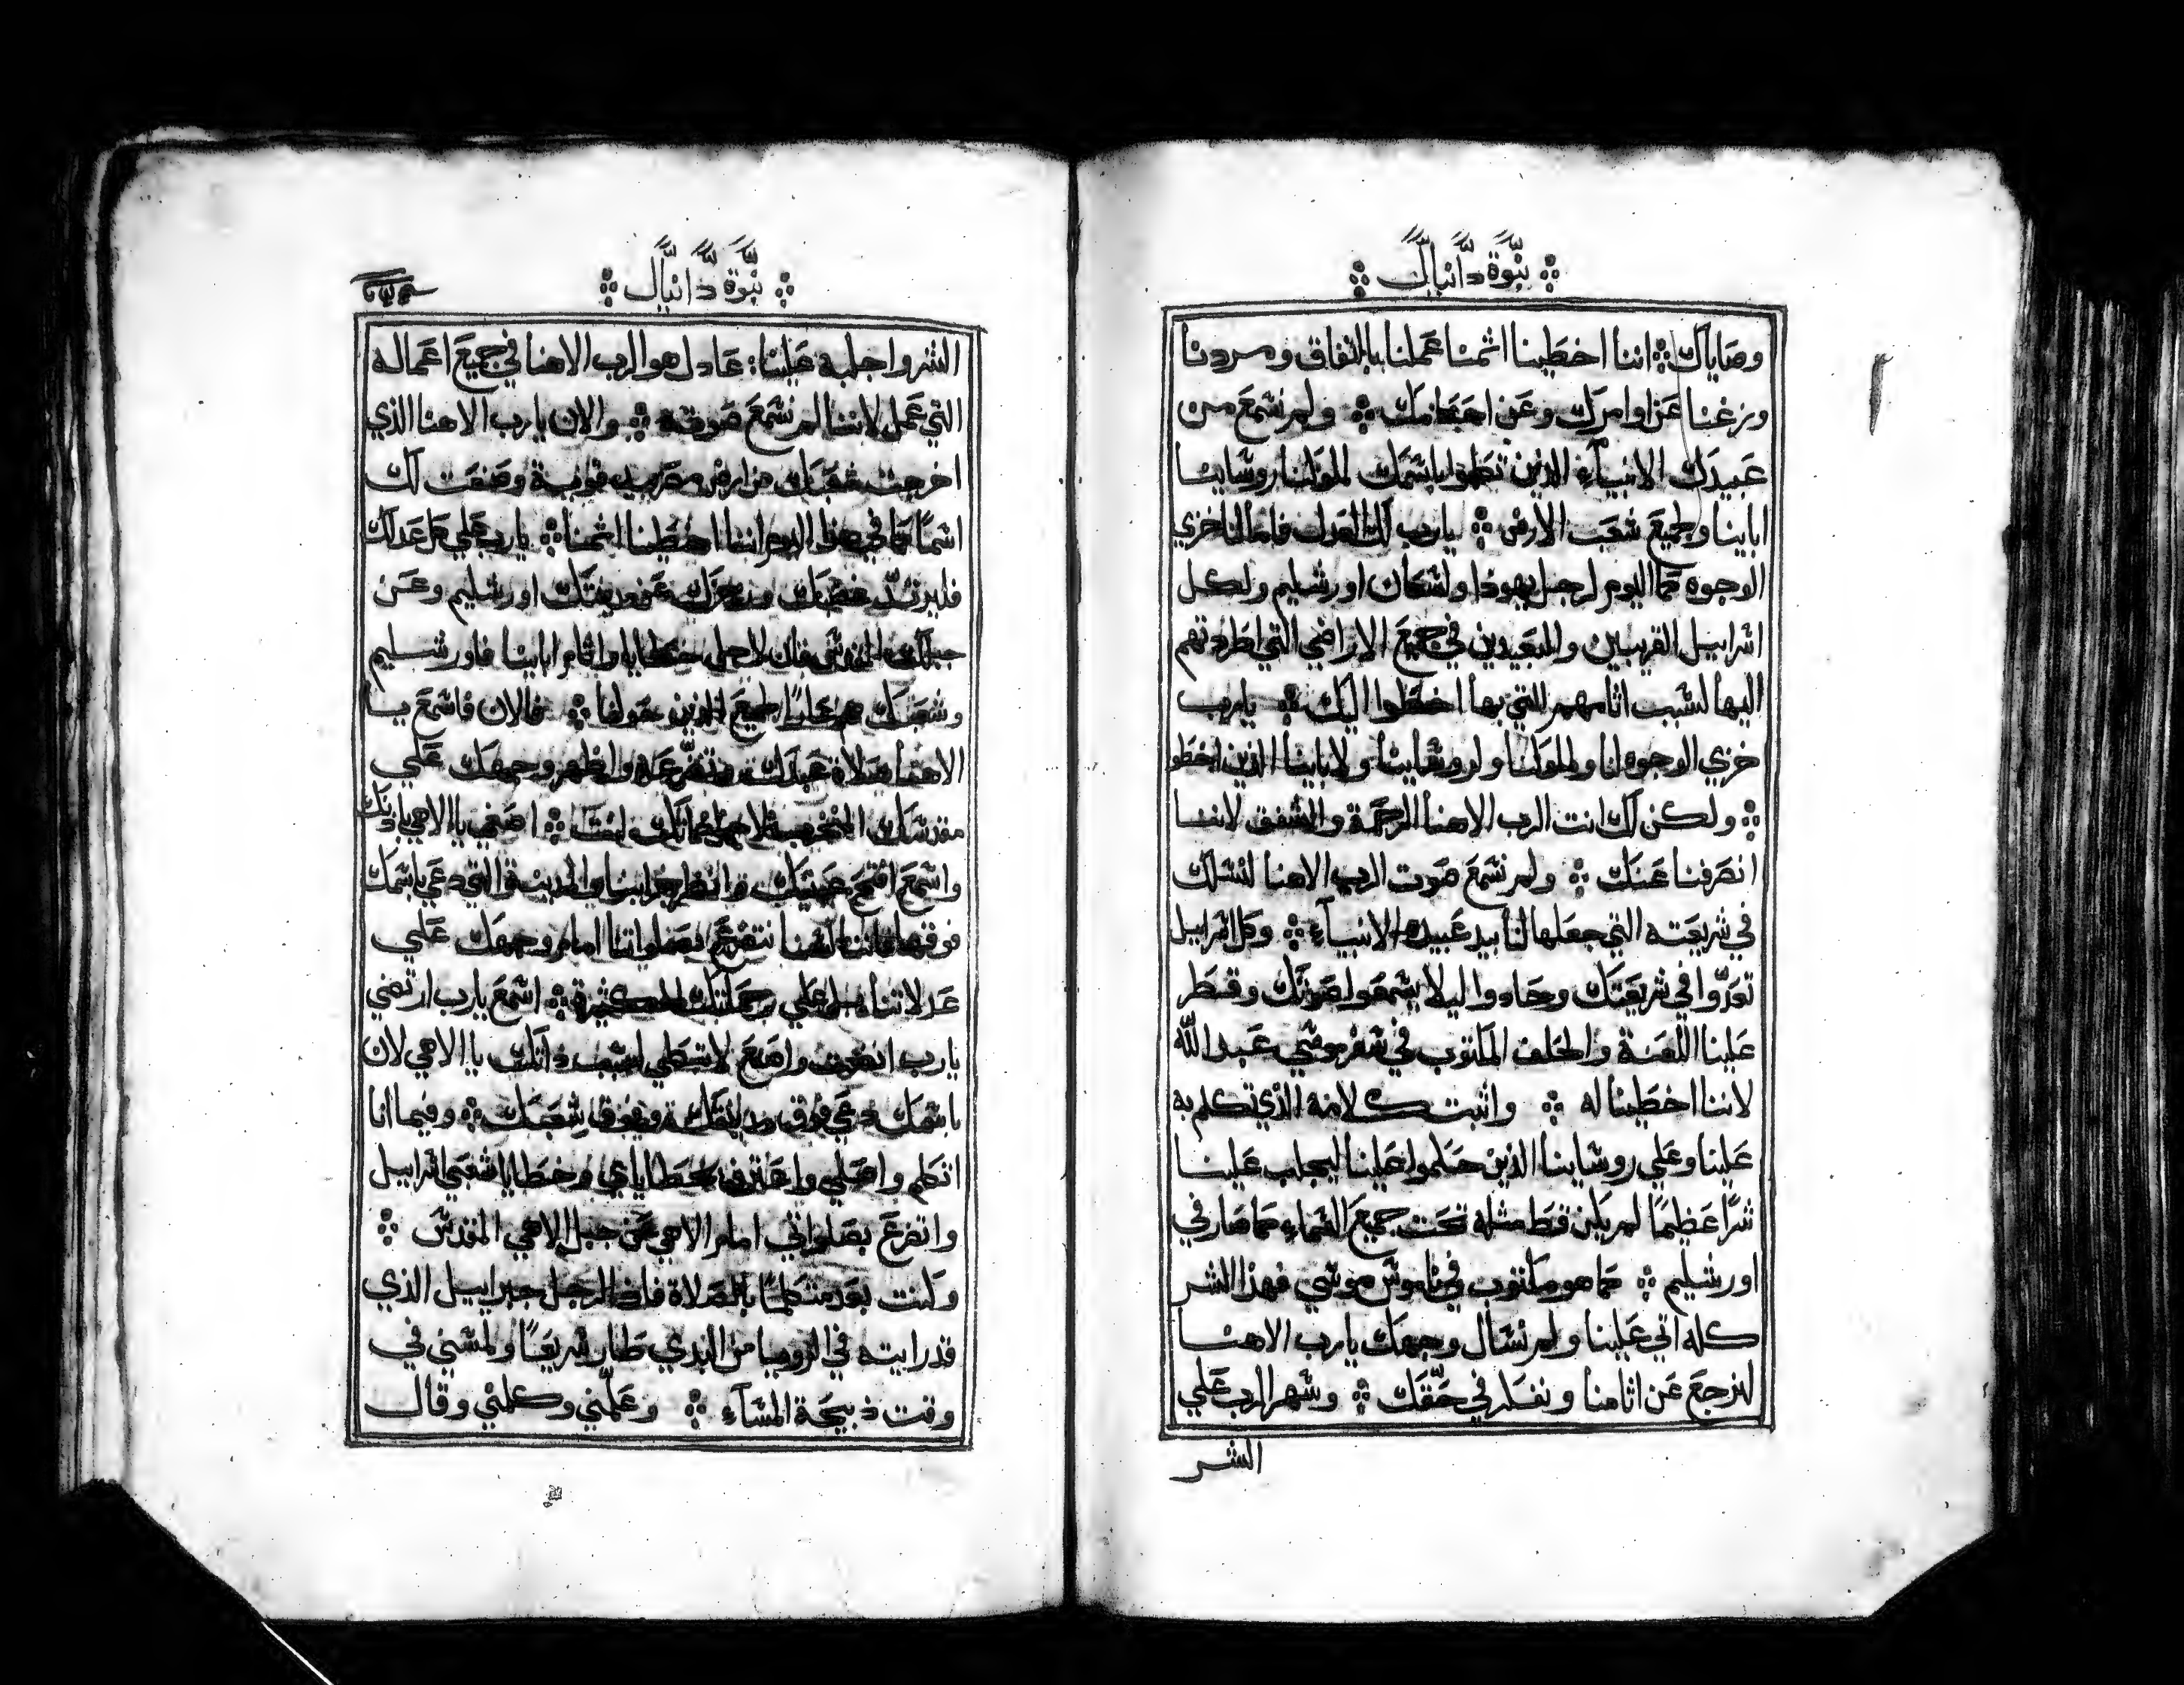 نبوة دانيال
وصاياك اننا اخطينا اثمنا عملنا بالنفاق ومردنا
وزغنا عن اوامرك وعن احكامك ولم نسمع من
عبيدك الانبياء الذين نطقوا باسمك لملوكنا روساينا
اباينا وجميع شعب الارض يارب لك العدل فاما لنا خزي
الوجوه كما اليوم لرجل يهوذا ولسكان اورشليم ولكل
اسراييل القريبين والبعيدين في جميع الاراضي التي طردتهم
اليها لسبب اثامهم التي بها اخطوا اليك يارب
خزي الوجوه لنا ولملوكنا ولروساينا ولاباينا الذين اخطو
ولكن لك انت الرب الاهنا الرحمة والشفق لاننا
انصرفنا عنك ولم نسمع صوت الرب الاهنا لنسلك
في شريعته التي جعلها لنا بيد عبيده الانبياء وكل اسراييل
تعدوا في شريعتك وحادوا ليلا يسمعوا صوتك وقطر
علينا اللعنة والحلف المكتوب في سفر موسي عبد الله
لاننا اخطينا له واثبت كلامه الذي تكلم به
علينا وعلي روساينا الذين حكموا علينا ليجلب علينا
شرا عظيما لم يكن قط مثله تحت جميع السماء كما صار في
اورشليم كما هو مكتوب في ناموس موسي فهذا الشر
كله اتي علينا ولم نسال وجهك يارب الاهنا
لنرجع عن اثامنا ونفكر في حقك وسهر الرب علي
الشر
نبوة دانيال
الشر واجلبه علينا عادل هو الرب الاهنا في جميع اعماله
التي عمل لاننا لم نسمع صوته والان يارب الاهنا الذي
اخرجت شعبك من ارض مصر بيد قوية وصنعت لك
اسما كما في هذا اليوم اننا اخطينا اثمنا يارب علي كل عدلك
فليرتد غضبك ورجزك عن مدينتك اورشليم وعن
جبلك المقدس فان لاجل خطايانا واثام اباينا فاورشليم
وشعبك هم عارا لجميع الذين حولنا فالان فاسمع يا
الاهنا صلاة عبدك وتضرعه واظهر وجهك علي
مقدسك المتخرب لاجل ذاتك انت اصغي يا الاهي باذنك
واسمع افتح عينيك وانظر خرابنا والمدينة التي دعي باسمك
فوقها فاننا لسنا نتضرع بصلواتنا امام وجهك علي
عدلاتنا بل علي رحمتك الكثيرة اسمع يارب ارتضي
يارب انصت واصنع لا تبطي لسبب ذاتك يا الاهي لان
باسمك دعي فوق مدينتك وفوق شعبك وفيما انا
اتكلم واصلي واعترف بخطاياي وخطايا شعبي اسراييل
واتضرع بصلواتي امام الاهي عن جبل الاهي المقدس
وكنت بعد متكلما بالصلاة فاذا الرجل جبراييل الذي
قد رايته في الرويا من البدي طار سريعا ولمسني في
وقت ذبيحة المساء وعلمني وكلمني وقال